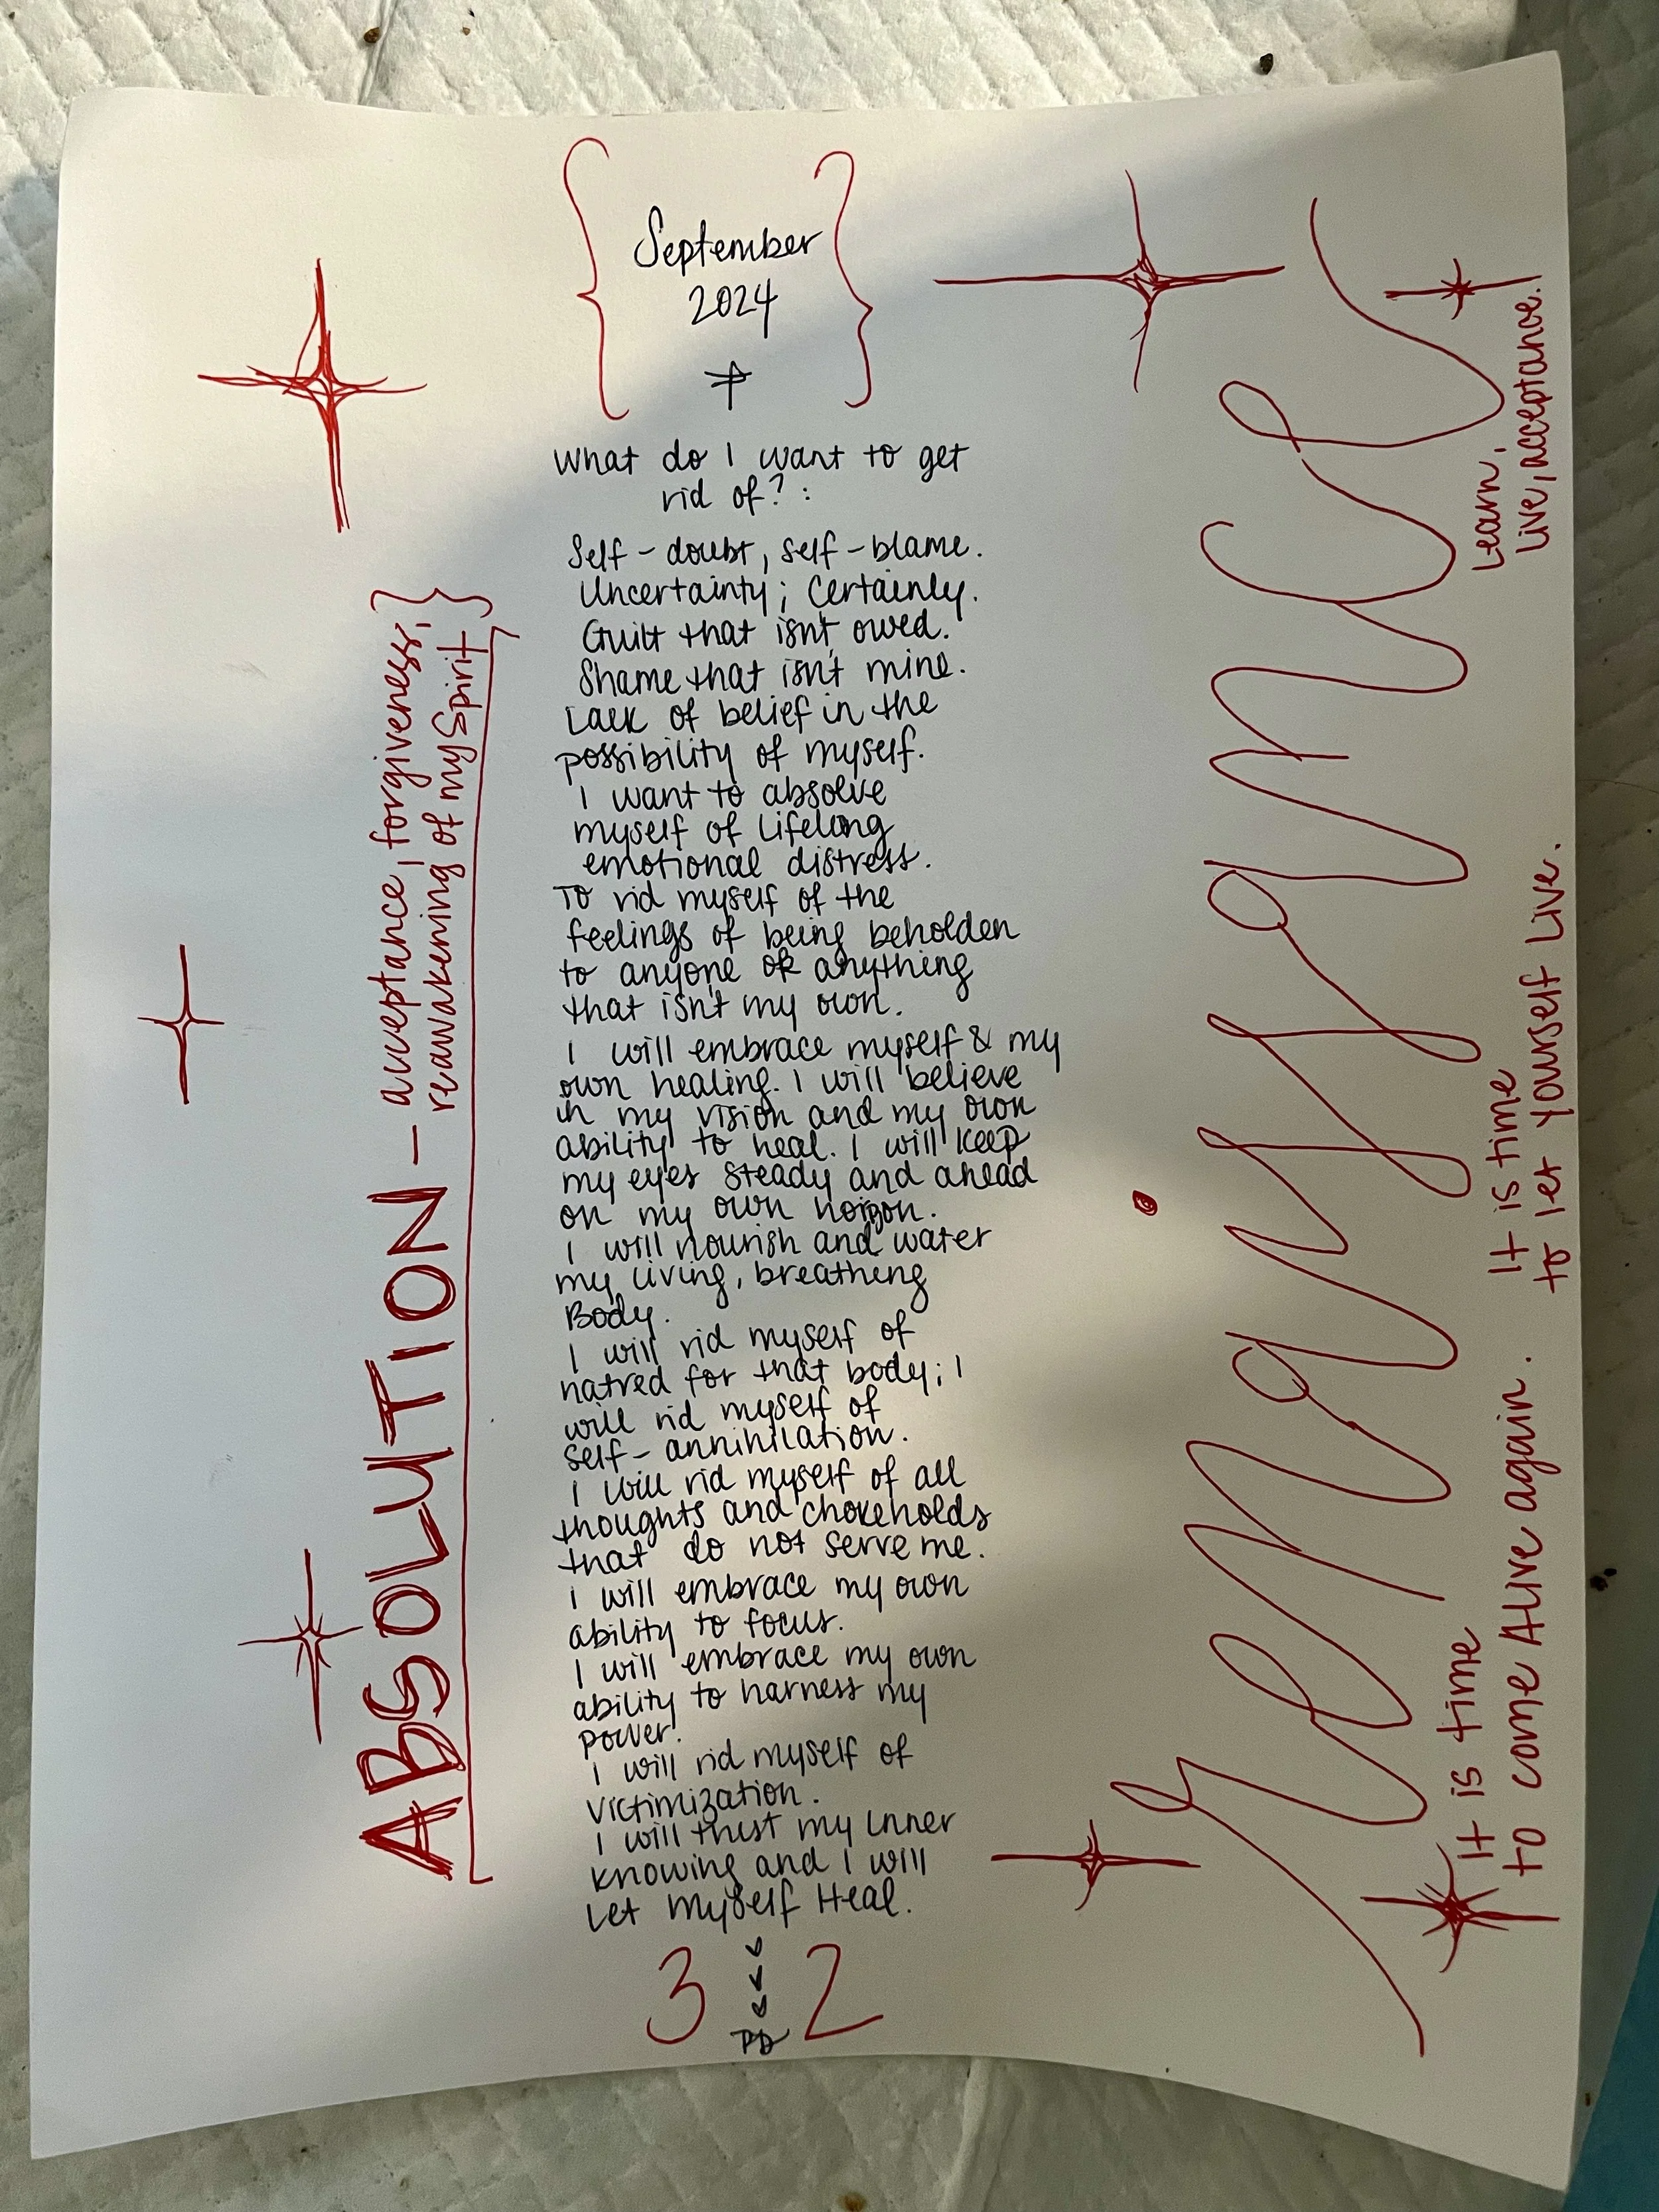 September
2024
What do I want to get
rid of? :
Self-doubt, self-blame.
Uncertainty; Certainly.
Guilt that isn't owed.
Shame that isn't mine.
Lack of belief in the
possibility of myself.
I want to absolve
myself of lifelong
emotional distress.
To rid myself of the
feelings of being beholden
to anyone or anything
that isn't my own.
I will embrace myself & my
own healing. I will believe
in my vision and my own
ability to heal. I will keep
my eyes steady and ahead
on my own horizon.
I will nourish and water
my living, breathing
Body.
I will rid myself of
hatred for that body; I
will rid myself of
self-annihilation.
I will rid myself of all
thoughts and chokeholds
that do not serve me.
I will embrace my own
ability to focus.
I will embrace my own
ability to harness my
power.
I will rid myself of
victimization.
I will trust my inner
knowing and I will
Let Myself Heal.
3 2
PD
ABSOLUTION — acceptance, forgiveness,
reawakening of my Spirit
renaissance
It is time
to come Alive again.
It is time
to let yourself Live.
Learn,
live, acceptance.